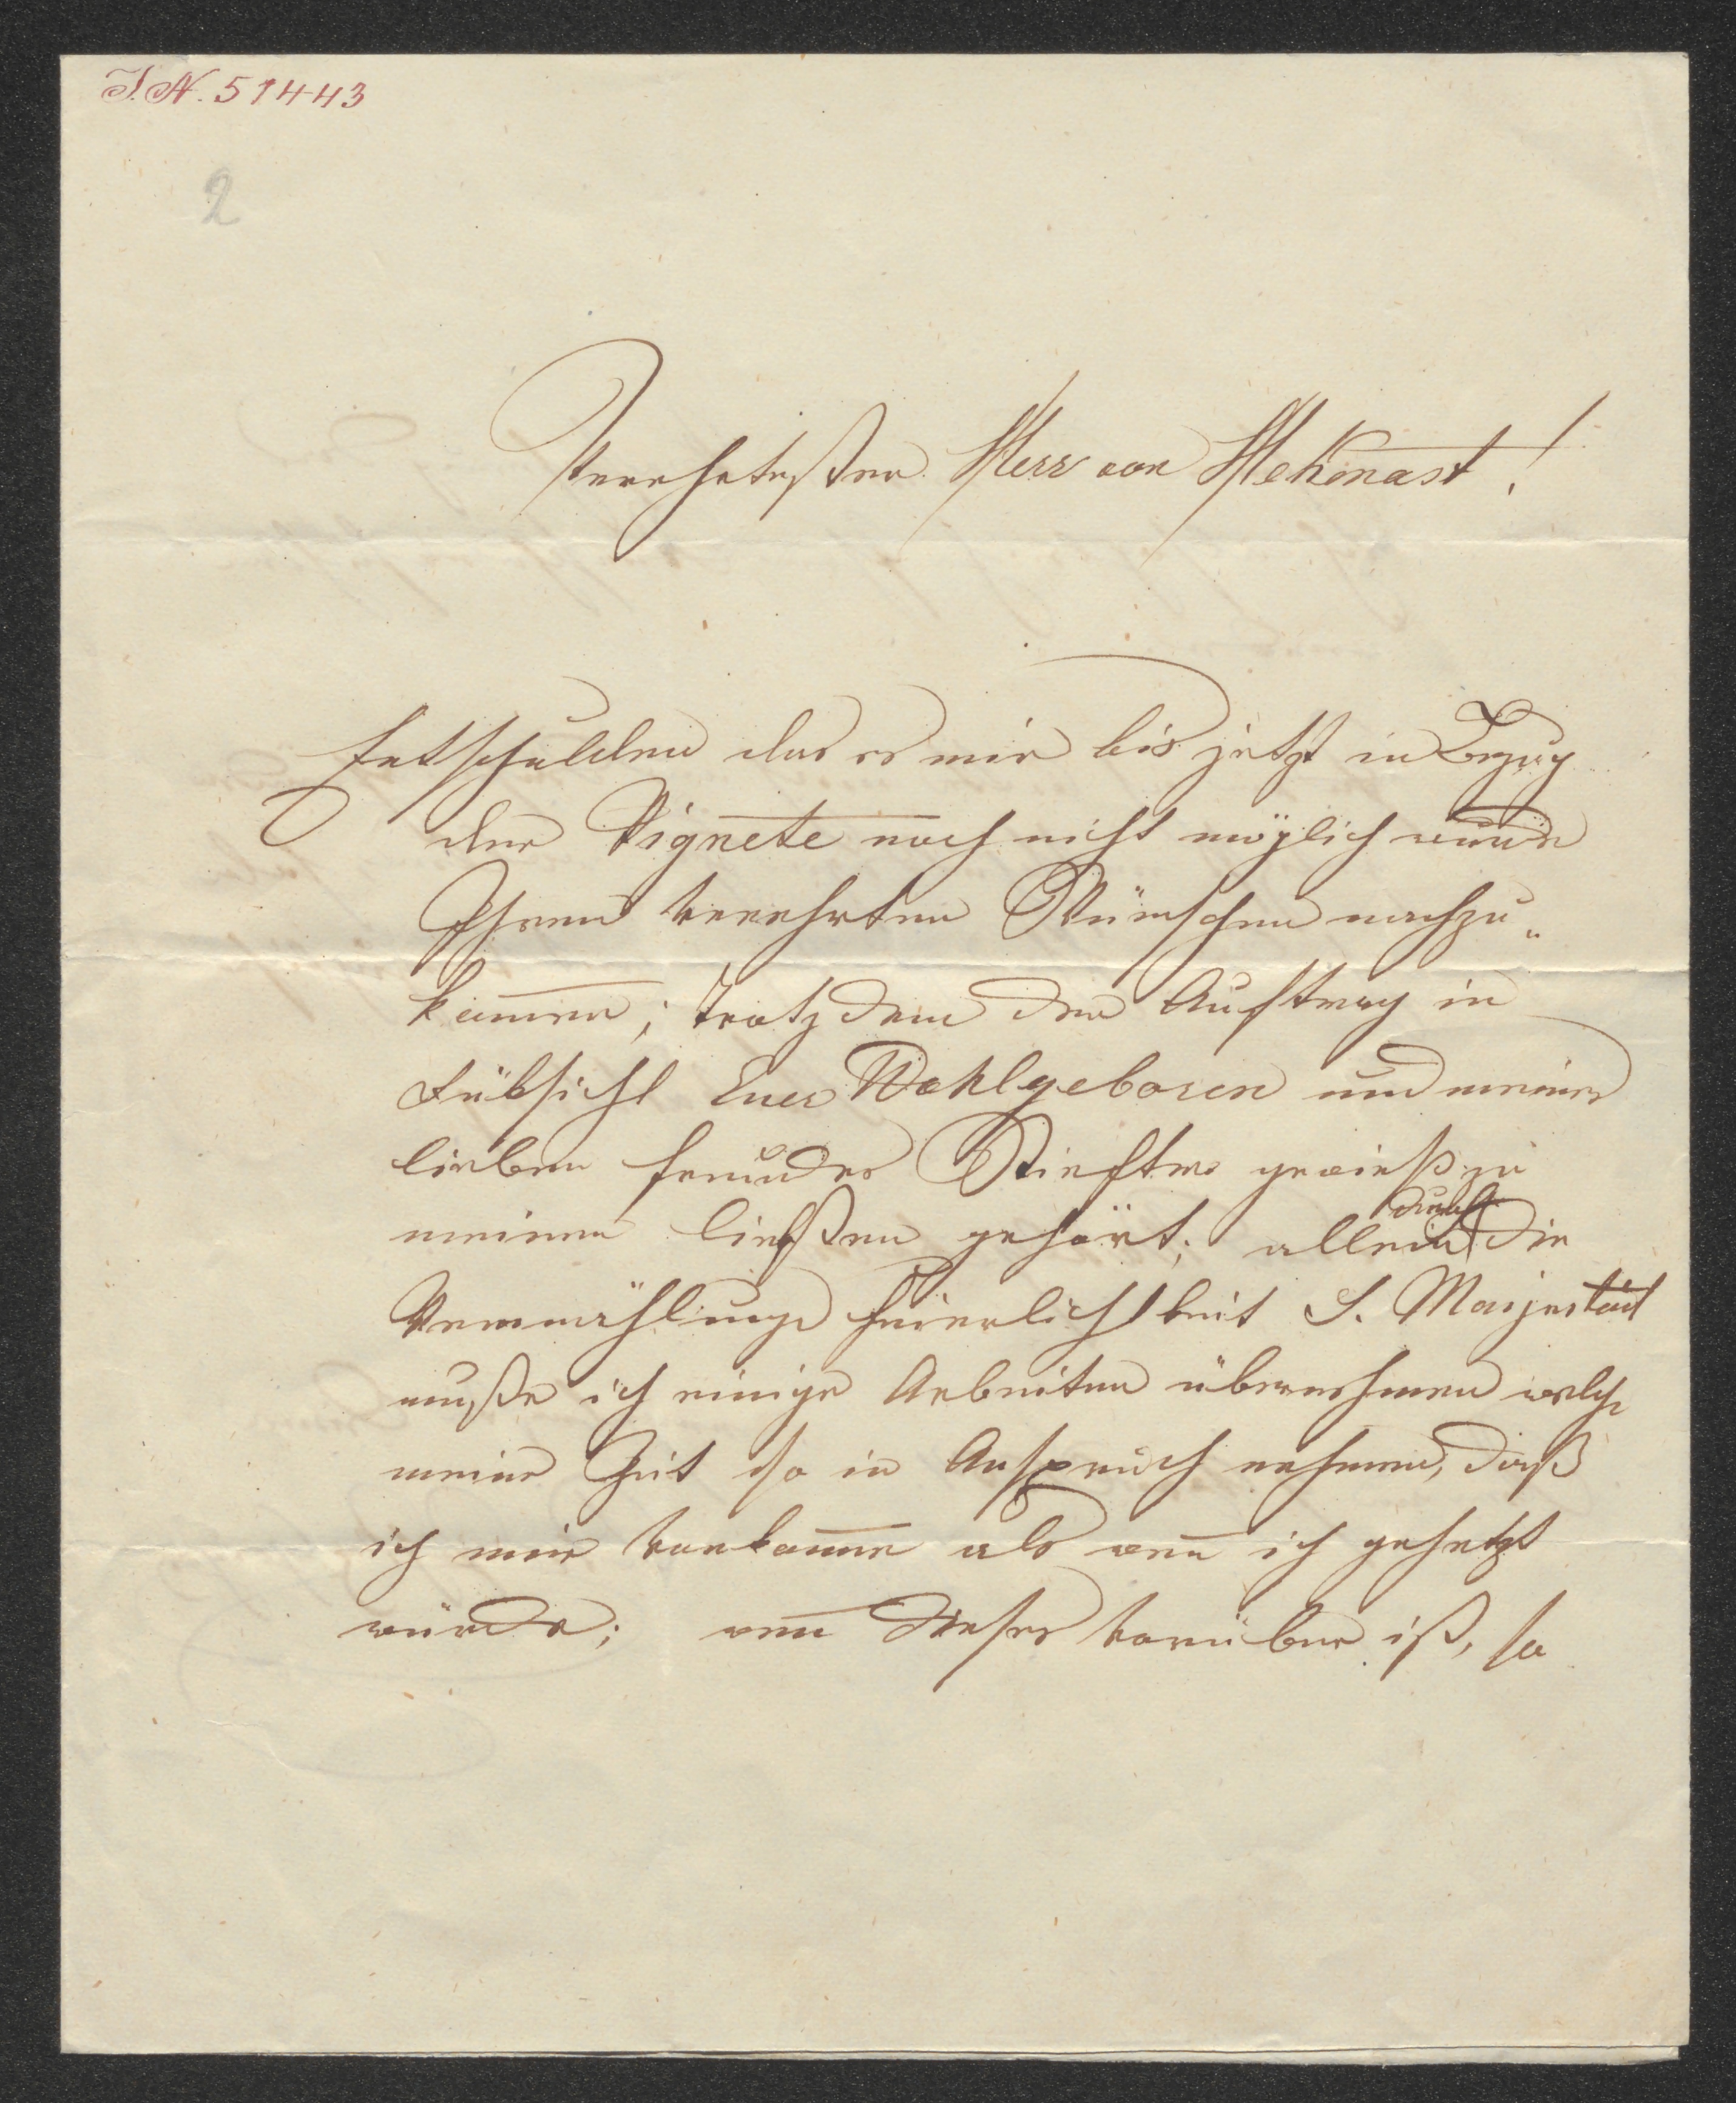 I.N. 51443
2
Verehrtester Herr von Hekenast!
Entschulden das es mir bis jetzt in Bezug
der Vignete noch nicht möglich wurde
Ihren verehrten Wünschen nachzu„
kom̅en; trotz dem der Auftrag in
Euer Wohlgeboren und meines
lieben Freundes Stifters gewieß zu
meinen liebsten gehört; allein durch die
Vermählungs feierlichkeit S. Majestät
mußte ich einige Arbeiten übernehmen welche
meine Zeit so in Anspruch nehmen, daß
ich mir vorkom̅e als wen̅ ich gehetzt
würde; wen̅ dieses vorüber ist, so